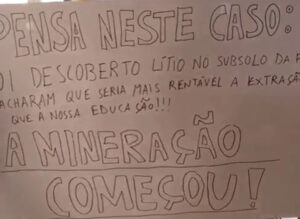 PENSA NESTE CASO:
OI DESCOBERTO LÍTIO NO SUBSOLO DA F
ACHARAM QUE SERIA MAIS RENTÁVEL A EXTRAÇÃ
QUE A NOSSA EDUCAÇÃO!!!
A MINERAÇÃO
COMEÇOU!